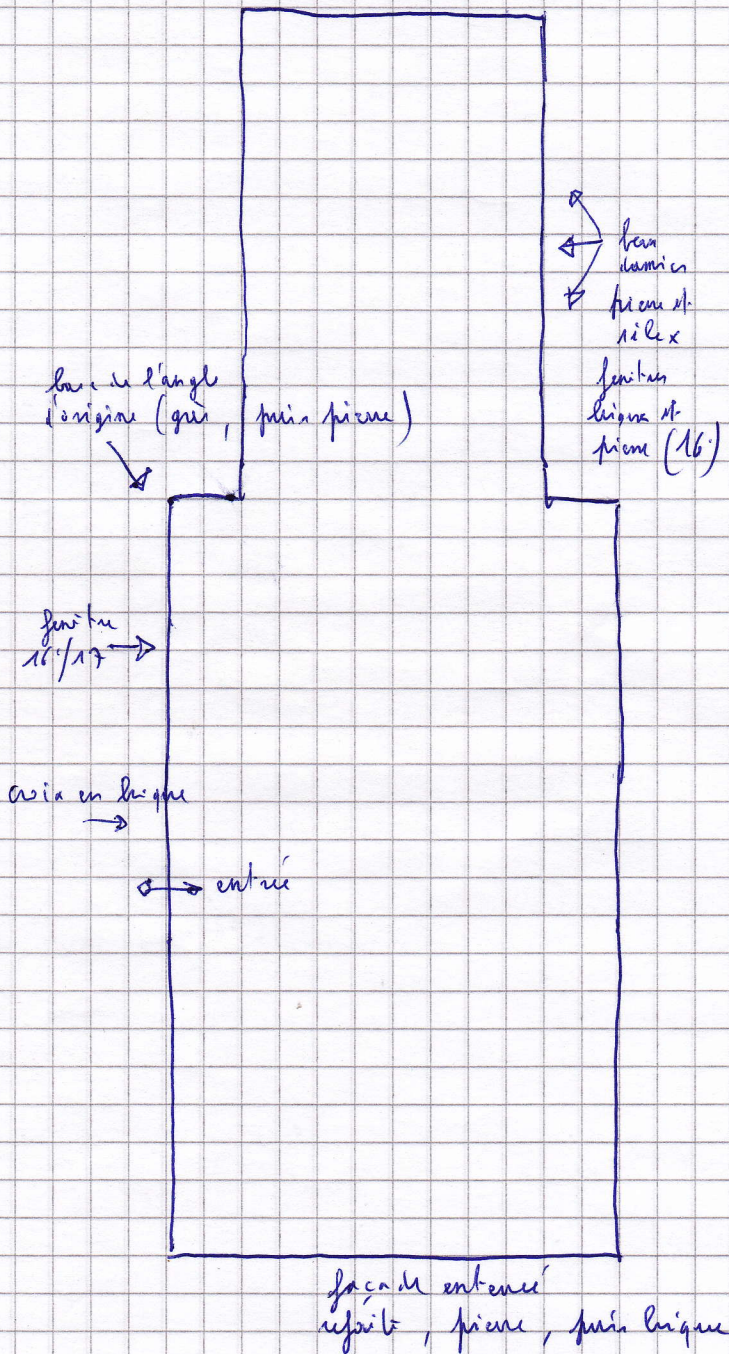 beau
damier
pierre et
silex
fenêtres
brique et
pierre (16.)
base de l'angle
d'origine (grès, puis pierre)
fenêtre
16./17
croix en brique
entrée
façade
refaite, pierre, puis brique